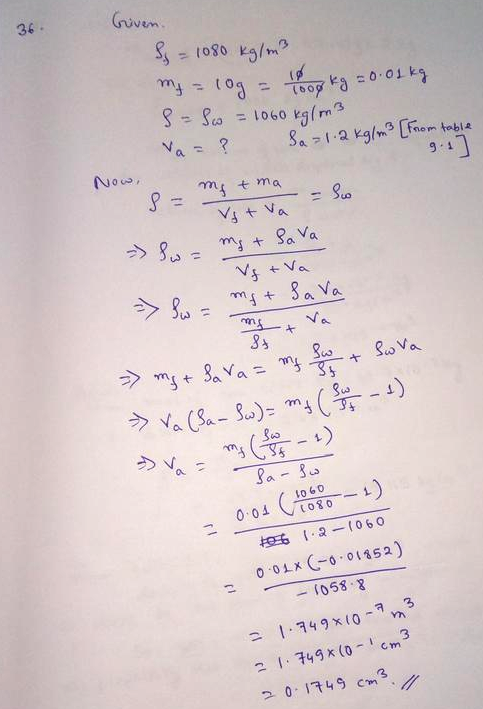 36. Given.
ρf = 1080 kg/m³
mf = 10g = 10/1000 kg = 0.01 kg
ρ = ρw = 1060 kg/m³
Va = ? ρa = 1.2 kg/m³ [From table 9.1]
Now, ρ = (mf + ma)/(Vf + Va) = ρw
⇒ ρw = (mf + ρaVa)/(Vf + Va)
⇒ ρw = (mf + ρaVa)/(mf/ρf + Va)
⇒ mf + ρaVa = mf ρw/ρf + ρwVa
⇒ Va(ρa - ρw) = mf(ρw/ρf - 1)
⇒ Va = mf(ρw/ρf - 1)/(ρa - ρw)
= 0.01(1060/1080 - 1)/(1.2 - 1060)
= 0.01×(-0.01852)/(-1058.8)
= 1.749×10⁻⁷ m³
= 1.749×10⁻¹ cm³
= 0.1749 cm³. //